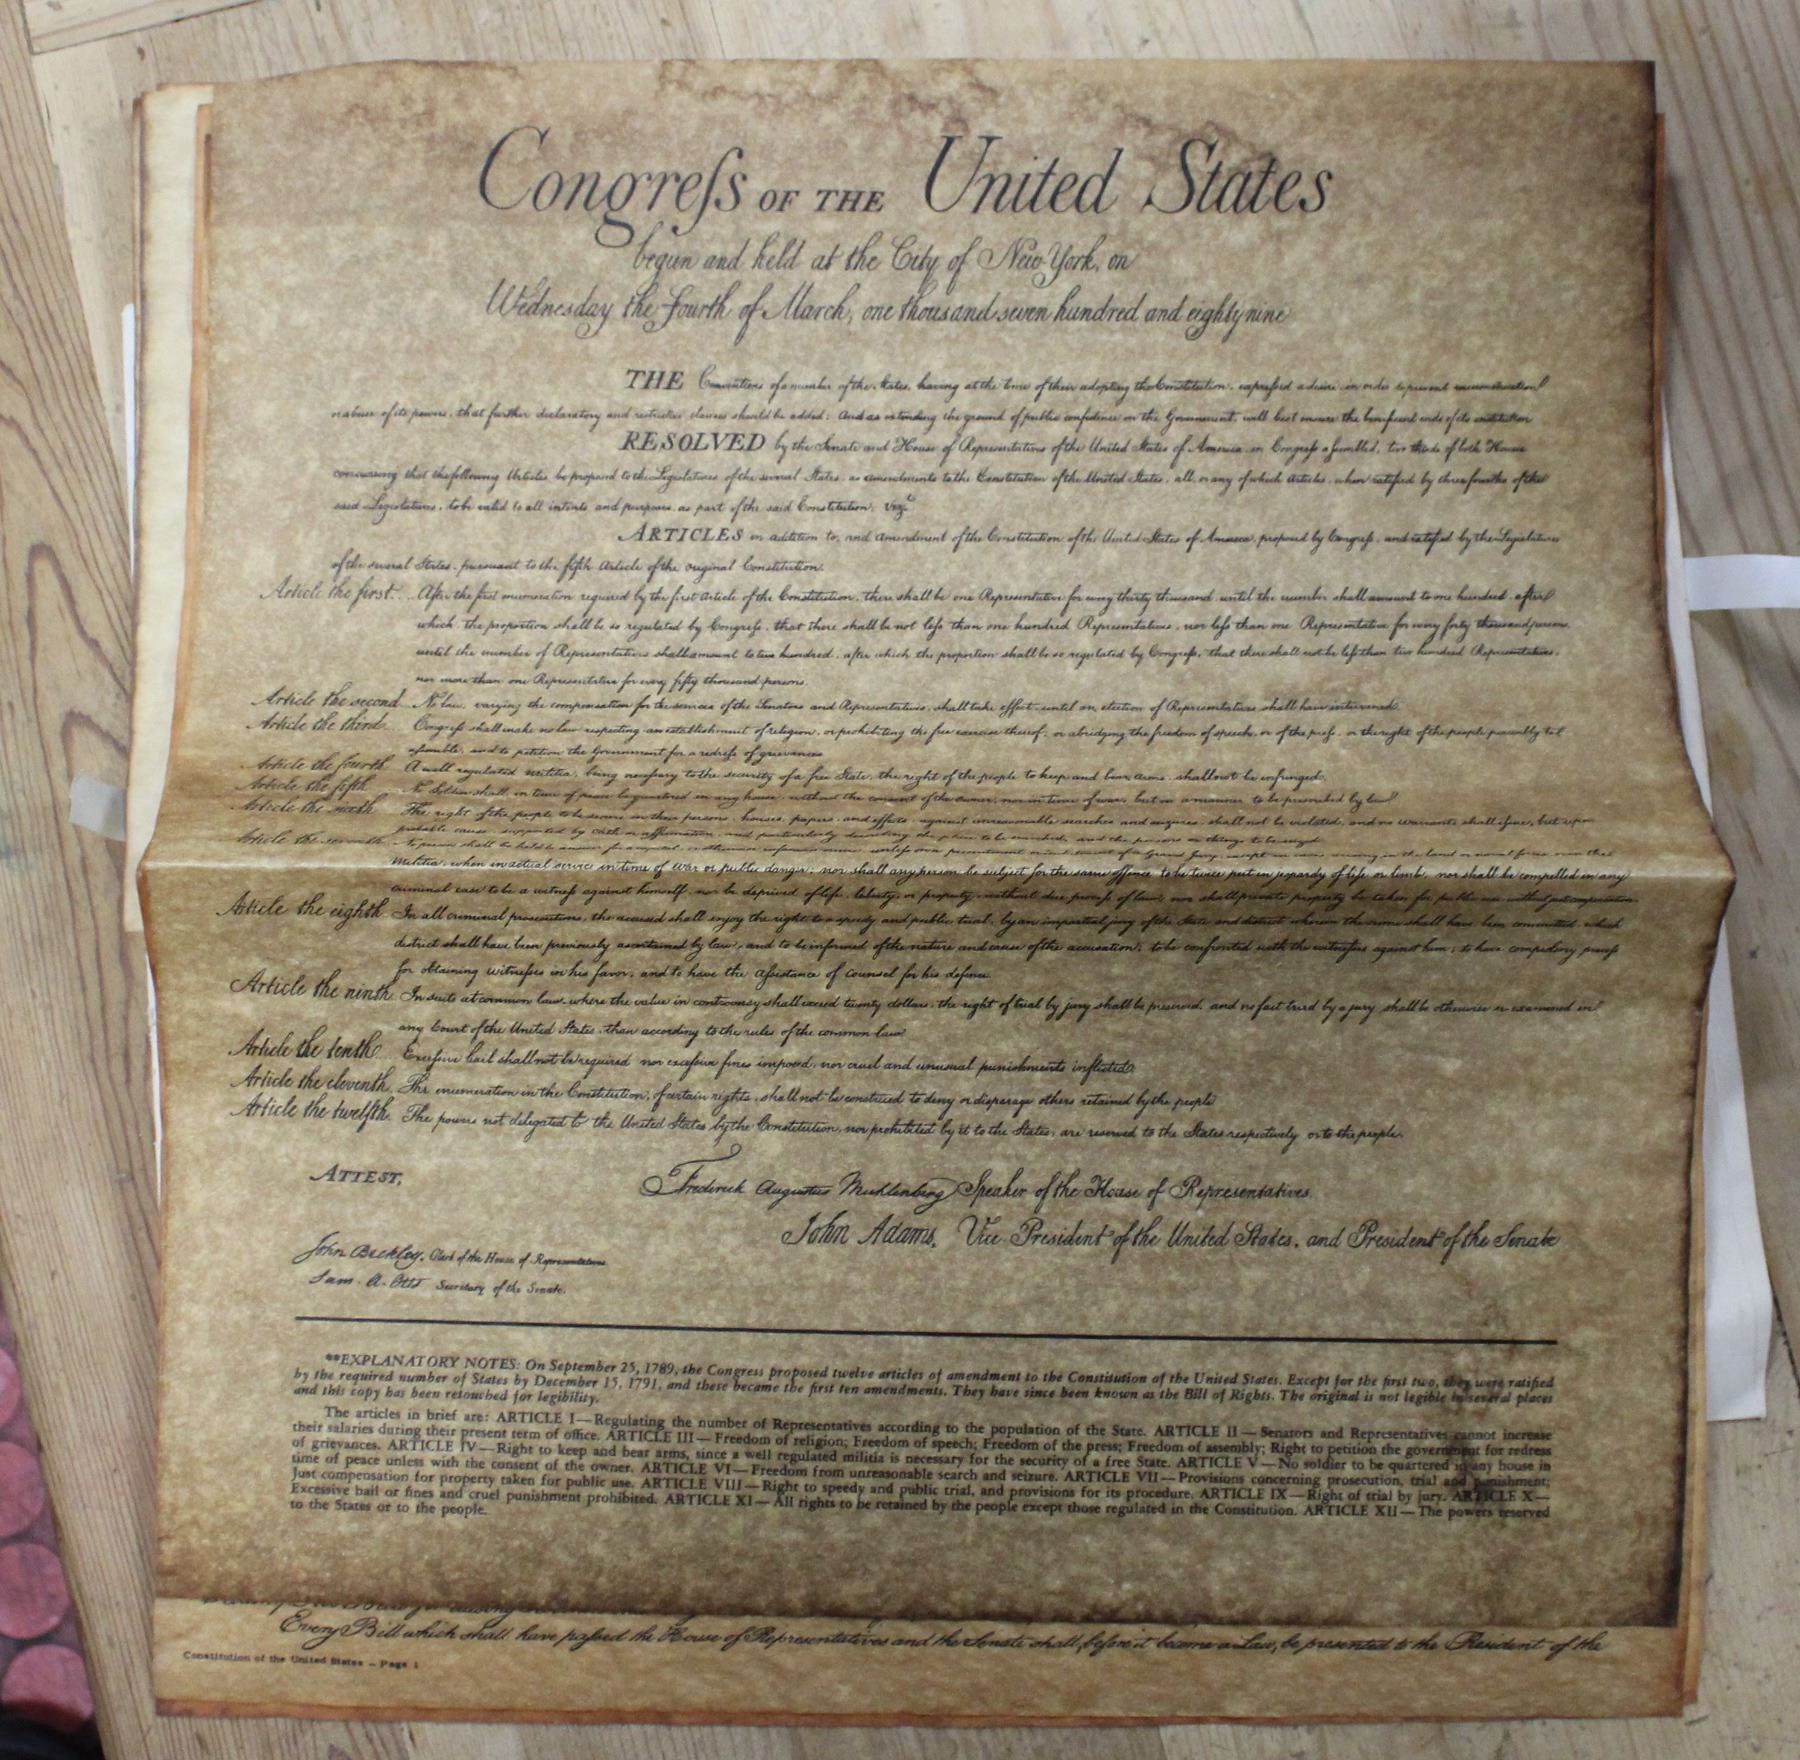 Congreſs OF THE United States
begun and held at the City of New-York, on
Wednesday the Fourth of March, one thousand seven hundred and eighty nine
THE Conventions of a number of the States, having at the time of their adopting the Constitution, expreſsed a desire, in order to prevent misconstruction
or abuse of its powers, that further declaratory and restrictive clauses should be added: And as extending the ground of public confidence in the Government, will best ensure the beneficent ends of its institution
RESOLVED by the Senate and House of Representatives of the United States of America, in Congreſs aſsembled, two thirds of both Houses
concurring that the following Articles be proposed to the Legislatures of the several States, as amendments to the Constitution of the United States, all, or any of which Articles, when ratified by three fourths of the
said Legislatures, to be valid to all intents and purposes, as part of the said Constitution; vizt
ARTICLES in addition to, and Amendment of the Constitution of the United States of America, proposed by Congreſs, and ratified by the Legislatures
of the several States, pursuant to the fifth Article of the original Constitution.
Article the first... After the first enumeration required by the first Article of the Constitution, there shall be one Representative for every thirty thousand, until the number shall amount to one hundred, after
which, the proportion shall be so regulated by Congreſs, that there shall be not leſs than one hundred Representatives, nor leſs than one Representative for every forty thousand persons,
until the number of Representatives shall amount to two hundred, after which the proportion shall be so regulated by Congreſs, that there shall not be leſs than two hundred Representatives,
nor more than one Representative for every fifty thousand persons.
Article the second... No law, varying the compensation for the services of the Senators and Representatives, shall take effect, until an election of Representatives shall have intervened.
Article the third... Congreſs shall make no law respecting an establishment of religion, or prohibiting the free exercise thereof; or abridging the freedom of speech, or of the preſs, or the right of the people peaceably to
aſsemble, and to petition the Government for a redreſs of grievances.
Article the fourth A well regulated militia, being necessary to the security of a free State, the right of the people to keep and bear arms, shall not be infringed.
Article the fifth No Soldier shall, in time of peace be quartered in any house, without the consent of the owner, nor in time of war, but in a manner to be prescribed by law.
Article the sixth The right of the people to be secure in their persons, houses, papers, and effects, against unreasonable searches and seizures, shall not be violated, and no warrants shall iſsue, but upon
probable cause, supported by oath or affirmation, and particularly describing the place to be searched, and the persons or things to be seized.
Article the seventh No person shall be held to answer for a capital, or otherwise infamous crime, unleſs on a presentment or indictment of a Grand Jury, except in cases arising in the land or naval forces, or in the
Militia, when in actual service in time of war or public danger; nor shall any person be subject for the same offence to be twice put in jeopardy of life or limb, nor shall be compelled in any
criminal case to be a witness against himself, nor be deprived of life, liberty, or property, without due proceſs of law; nor shall private property be taken for public use without just compensation.
Article the eighth In all criminal prosecutions, the accused shall enjoy the right to a speedy and public trial, by an impartial jury of the State and district wherein the crime shall have been committed, which
district shall have been previously ascertained by law, and to be informed of the nature and cause of the accusation; to be confronted with the witneſses against him; to have compulsory proceſs
for obtaining witneſses in his favor, and to have the aſsistance of counsel for his defence.
Article the ninth In suits at common law, where the value in controversy shall exceed twenty dollars, the right of trial by jury shall be preserved, and no fact tried by a jury, shall be otherwise re-examined in
any Court of the United States, than according to the rules of the common law.
Article the tenth Exceſsive bail shall not be required nor exceſsive fines imposed, nor cruel and unusual punishments inflicted.
Article the eleventh. The enumeration in the Constitution, of certain rights, shall not be construed to deny or disparage others retained by the people.
Article the twelfth. The powers not delegated to the United States by the Constitution, nor prohibited by it to the States, are reserved to the States respectively, or to the people.
ATTEST,
Frederick Augustus Muhlenberg Speaker of the House of Representatives.
John Adams, Vice President of the United States, and President of the Senate
John Beckley, Clerk of the House of Representatives
Sam. A. Otis Secretary of the Senate.
**EXPLANATORY NOTES: On September 25, 1789, the Congress proposed twelve articles of amendment to the Constitution of the United States. Except for the first two, they were ratified
by the required number of States by December 15, 1791, and these became the first ten amendments. They have since been known as the Bill of Rights. The original is not legible in several places
and this copy has been retouched for legibility.
The articles in brief are: ARTICLE I—Regulating the number of Representatives according to the population of the State. ARTICLE II—Senators and Representatives cannot increase
their salaries during their present term of office. ARTICLE III—Freedom of religion; Freedom of speech; Freedom of the press; Freedom of assembly; Right to petition the government for redress
of grievances. ARTICLE IV—Right to keep and bear arms, since a well regulated militia is necessary for the security of a free State. ARTICLE V—No soldier to be quartered in any house in
time of peace unless with the consent of the owner. ARTICLE VI—Freedom from unreasonable search and seizure. ARTICLE VII—Provisions concerning prosecution, trial and punishment;
Just compensation for property taken for public use. ARTICLE VIII—Right to speedy and public trial, and provisions for its procedure. ARTICLE IX—Right of trial by jury. ARTICLE X—
Excessive bail or fines and cruel punishment prohibited. ARTICLE XI—All rights to be retained by the people except those regulated in the Constitution. ARTICLE XII—The powers reserved
to the States or to the people.
Every Bill which shall have paſsed the House of Representatives and the Senate shall, before it become a Law, be presented to the President of the
Constitution of the United States – Page 1